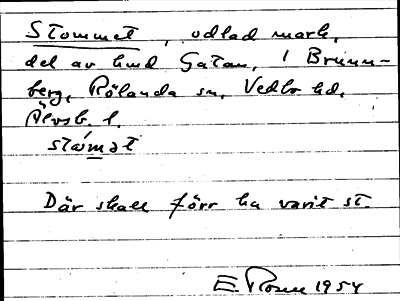 Stommet, odlad mark,
del av hmd Gatan, 1 Brunn-
berg, Rölanda sn, Vedbo hd,
Älvsb. l.
stómət
Där skall förr ha varit st.
E Rosen 1954